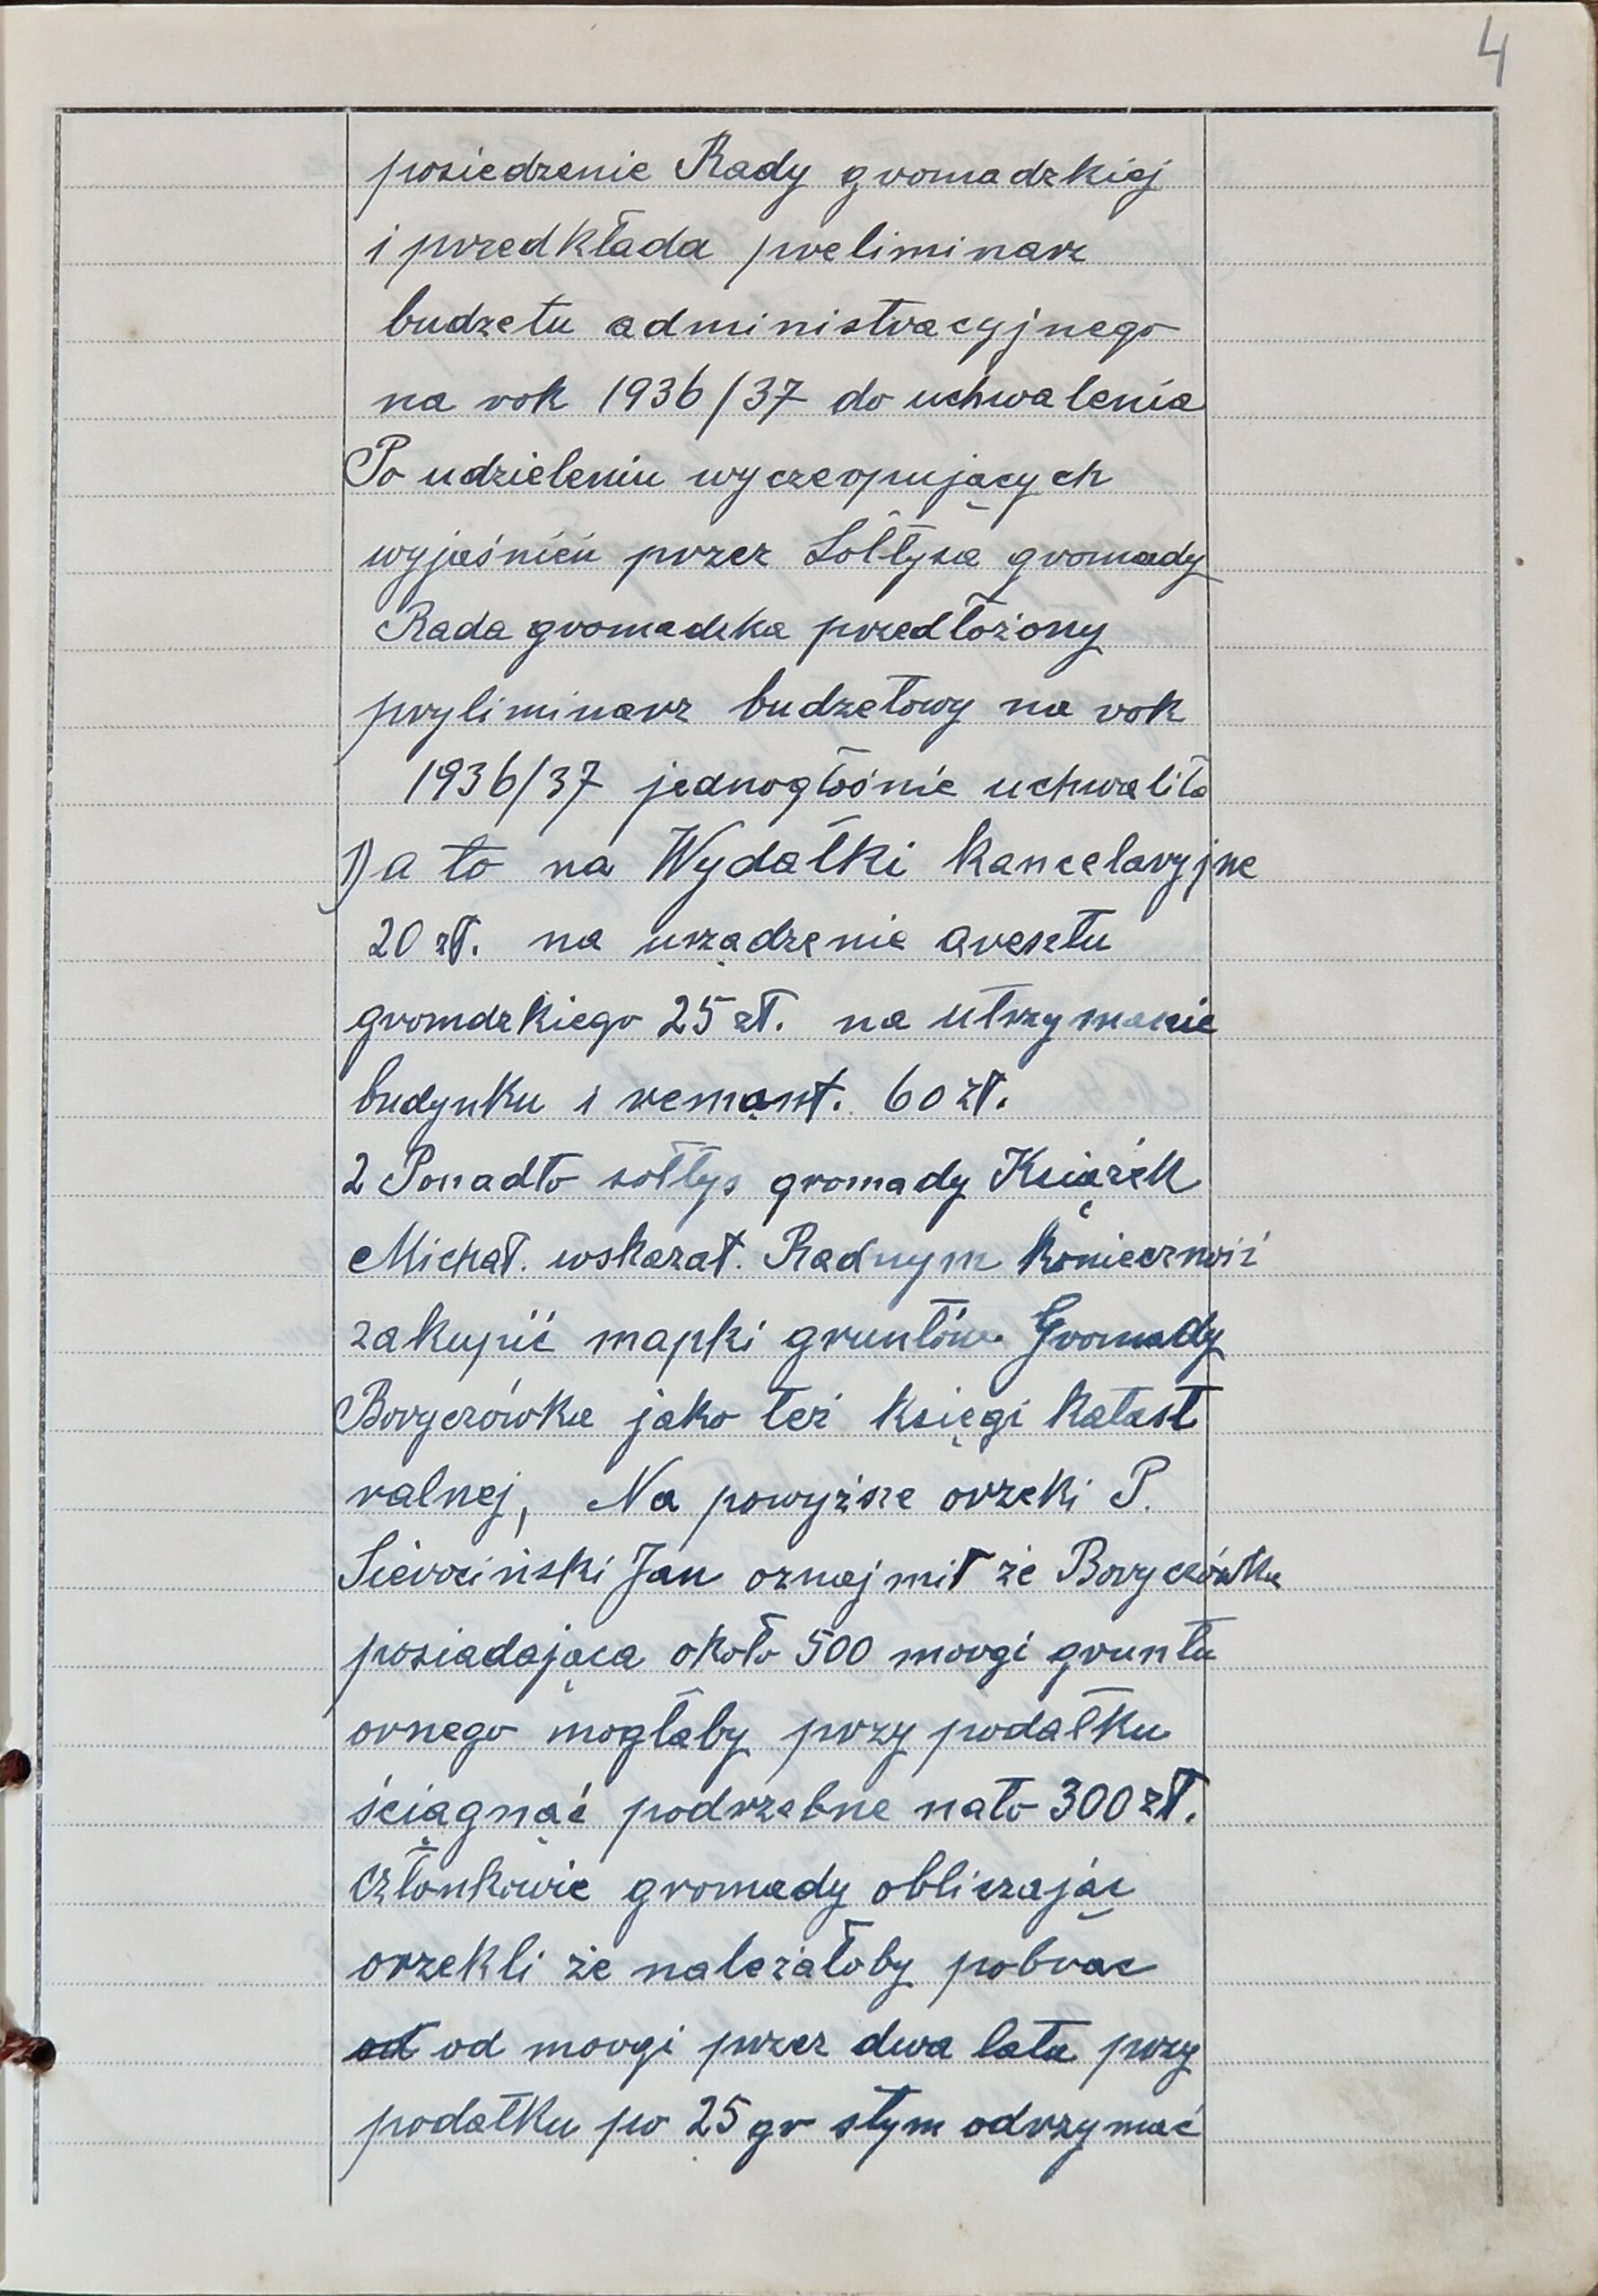 4
posiedzenie Rady gromadzkiej
i przedkłada preliminarz
budzetu administracyjnego
na rok 1936/37 do uchwalenia
Po udzieleniu wyczerpujących
wyjaśnień przez Sołtysa gromady
Rada gromadzka przedłożony
pryliminarz budzetowy na rok
1936/37 jednogłośnie uchwaliła
1) a to na Wydatki kancelaryjne
20 zł. na urządzenie aresztu
gromdzkiego 25 zł. na utrzymanie
budynku i remont. 60 zł.
2 Ponadto sołtys gromady Książek
Michał. wskazał. Radnym konieczność
zakupić mapki gruntów Gromady
Boryczówka jako też księgi katast
ralnej, Na powyższe orzeki P.
Sierociński Jan oznajmił że Boryczówka
posiadająca około 500 morgi gruntu
ornego mogłaby przy podatku
ściągnąć podrzebne nato 300 zł.
członkowie gromady obliczając
orzekli że należałoby pobrac
od od morgi przez dwa lata przy
podatku po 25 gr stym odrzymać